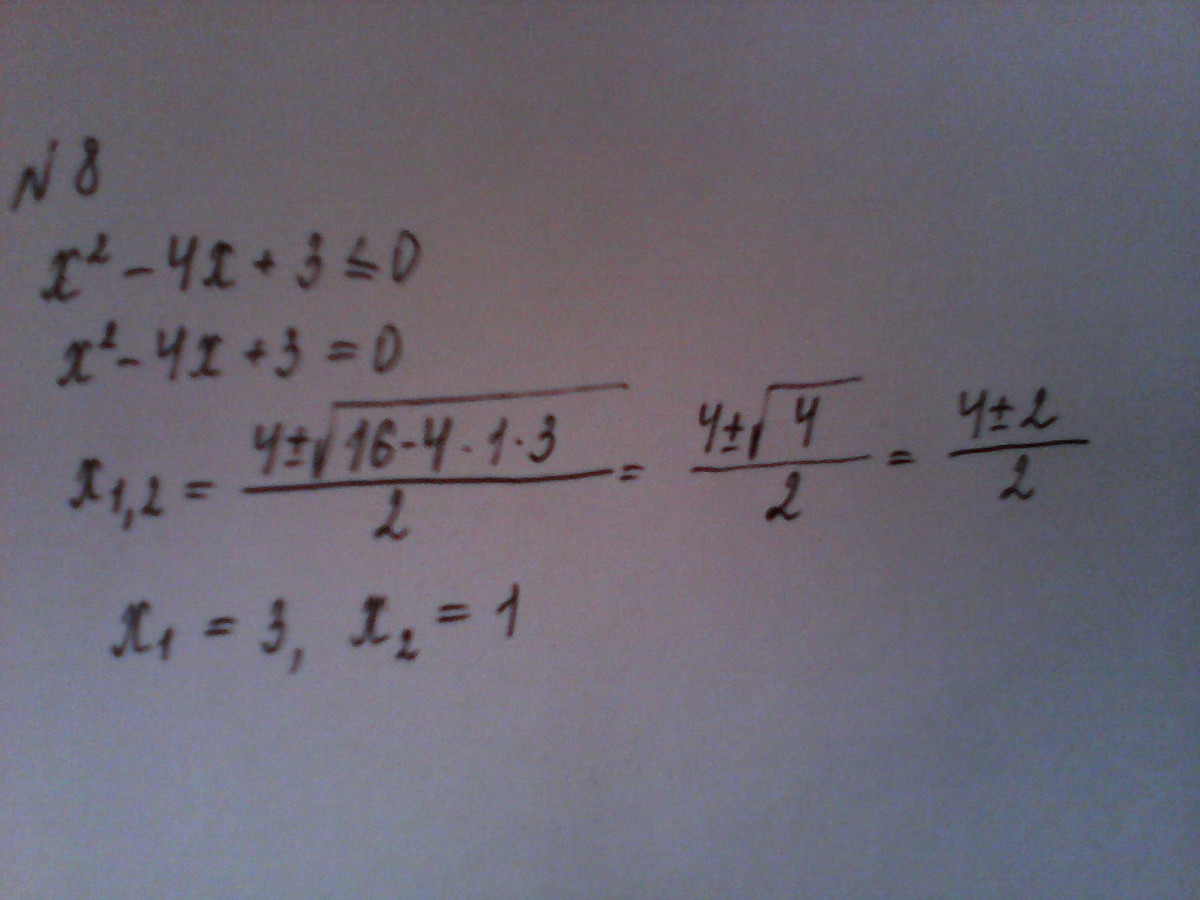 N 8
x² - 4x + 3 ≤ 0
x² - 4x + 3 = 0
x₁,₂ = (4±√(16-4·1·3))/2 = (4±√4)/2 = (4±2)/2
x₁ = 3, x₂ = 1